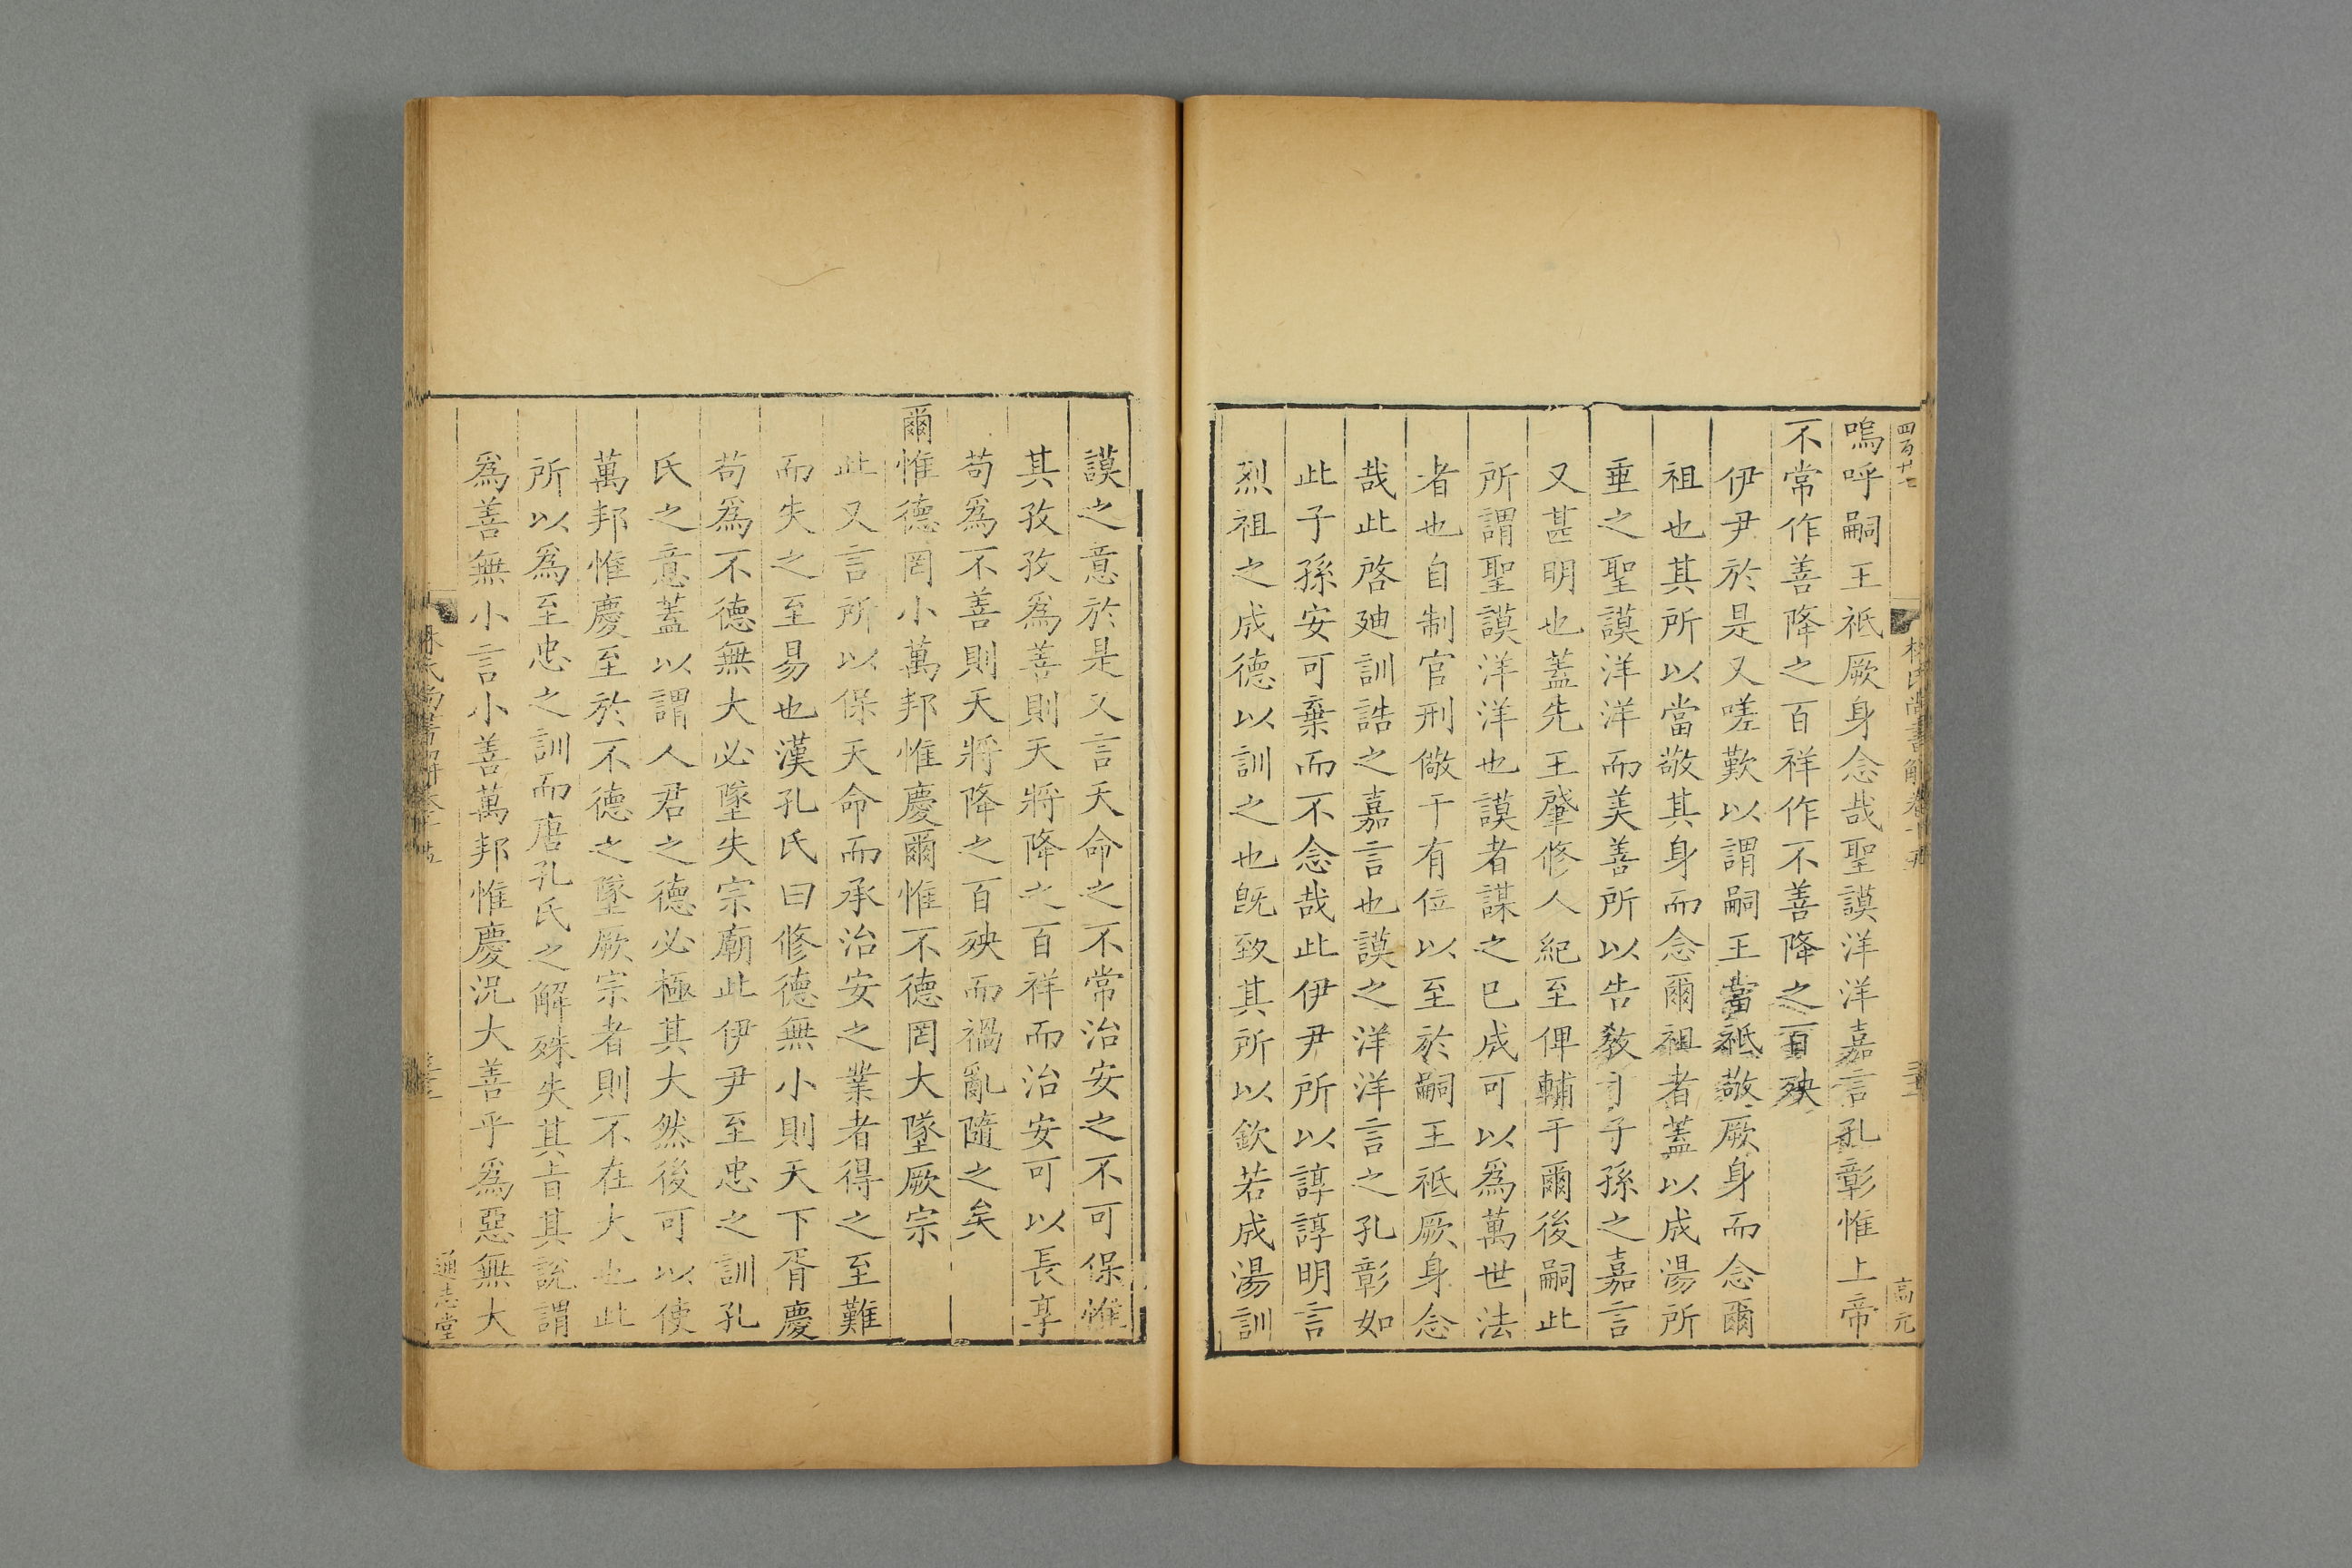 四百廿七
林氏尚書解卷十五
高元
嗚呼嗣王祗厥身念哉聖謨洋洋嘉言孔彰惟上帝
不常作善降之百祥作不善降之百殃
伊尹於是又嗟歎以謂嗣王當祗敬厥身而念爾
祖也其所以當敬其身而念爾祖者蓋以成湯所
垂之聖謨洋洋而美善所以告敎子孫之嘉言
又甚明也蓋先王肇修人紀至俾輔于爾後嗣此
所謂聖謨洋洋也謨者謀之已成可以爲萬世法
者也自制官刑儆于有位以至於嗣王祗厥身念
哉此啓廸訓誥之嘉言也謨之洋洋言之孔彰如
此子孫安可棄而不念哉此伊尹所以諄諄明言
烈祖之成德以訓之也旣致其所以欽若成湯訓
謨之意於是又言天命之不常治安之不可保惟
其孜孜爲善則天將降之百祥而治安可以長享
苟爲不善則天將降之百殃而禍亂隨之矣
爾惟德罔小萬邦惟慶爾惟不德罔大墜厥宗
此又言所以保天命而承治安之業者得之至難
而失之至易也漢孔氏曰修德無小則天下胥慶
苟爲不德無大必墜失宗廟此伊尹至忠之訓孔
氏之意蓋以謂人君之德必極其大然後可以使
萬邦惟慶至於不德之墜厥宗者則不在大也此
所以爲至忠之訓而唐孔氏之解殊失其旨其說謂
爲善無小言小善萬邦惟慶況大善乎爲惡無大
林氏尚書解卷十五
通志堂